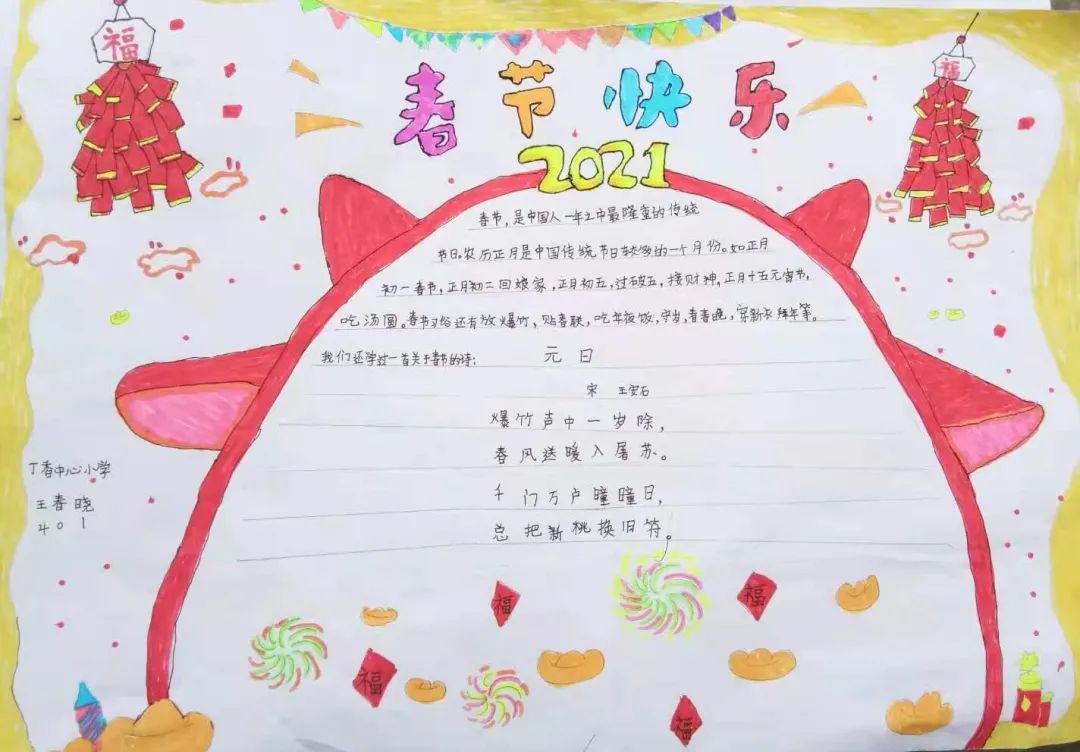 福
福
春节快乐
2021
春节,是中国人一年之中最隆重的传统
节日。农历正月是中国传统节日较多的一个月份。如正月
初一春节,正月初二回娘家,正月初五,过破五,接财神,正月十五元宵节,
吃汤圆。春节习俗还有放爆竹,贴春联,吃年夜饭,守岁,看春晚,穿新衣拜年等。
我们还学过一首关于春节的诗:
元日
宋 王安石
爆竹声中一岁除,
春风送暖入屠苏。
千门万户瞳瞳日,
总把新桃换旧符。
丁香中心小学
王春晓
401
福
福
福
福